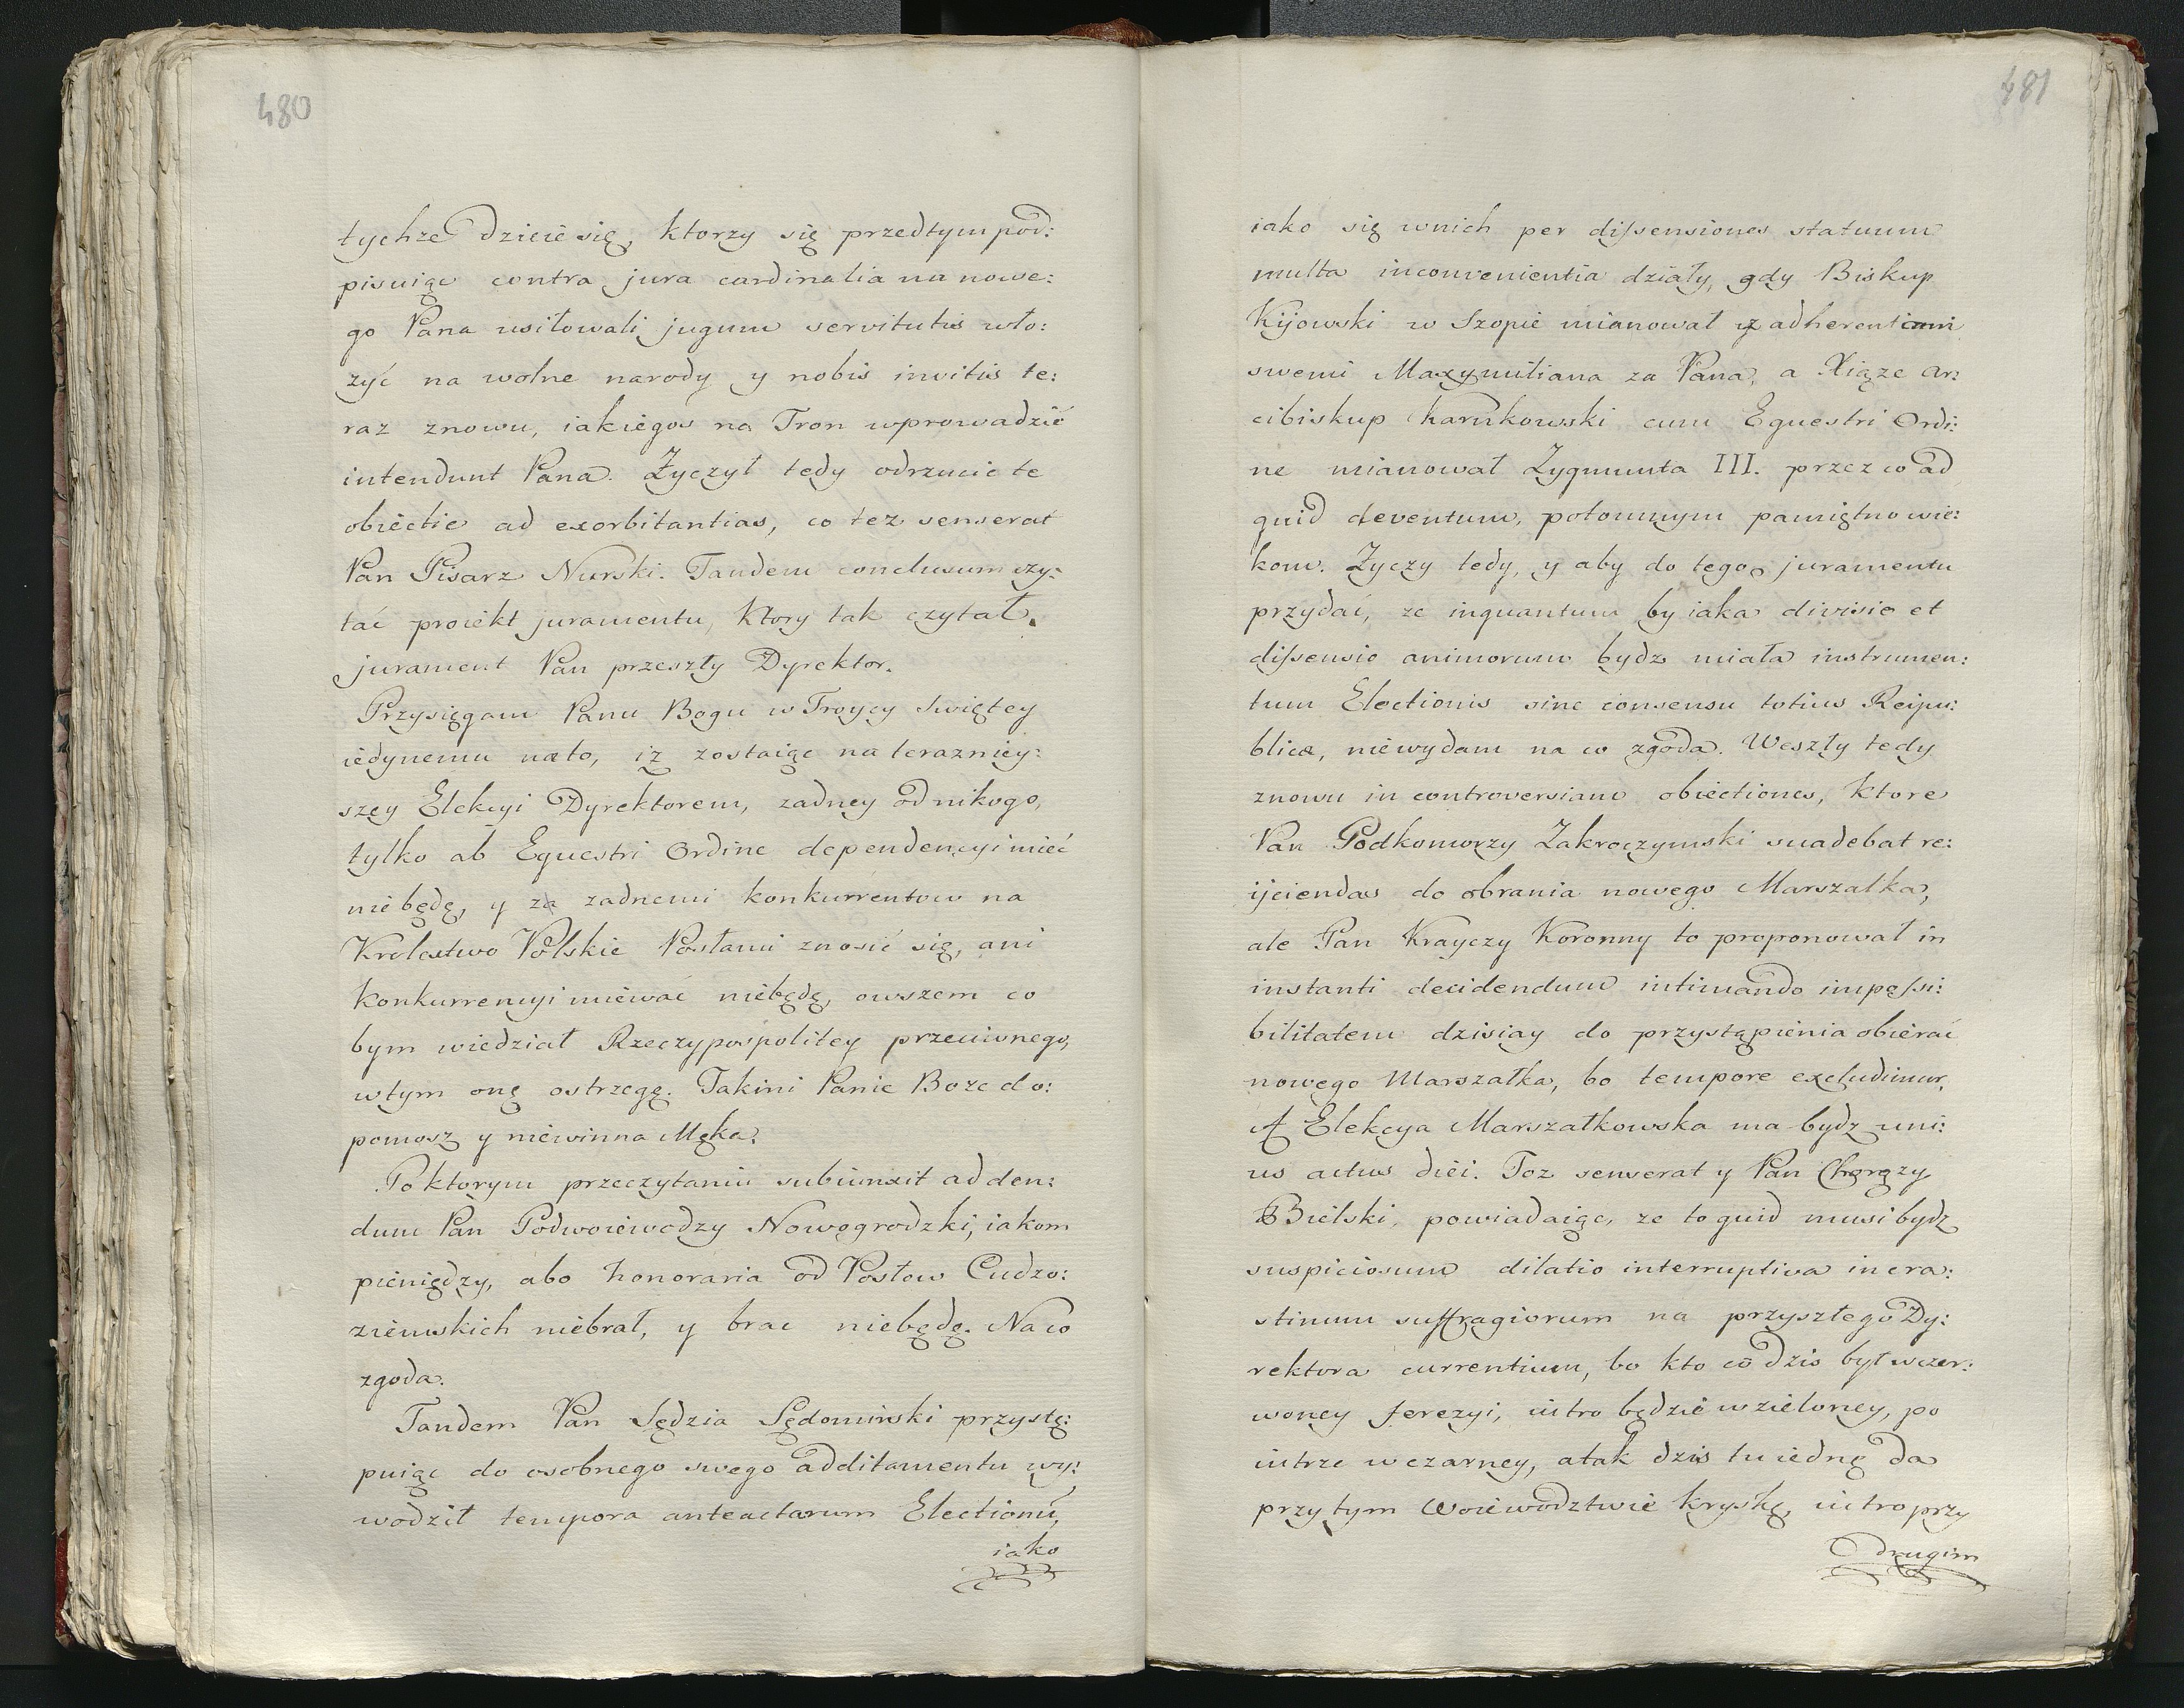 480
tychże dzieie się, ktorzy się przedtym pod:
pisuiąc contra jura cardinalia na nowe:
go Pana usiłowali jugum servitutis wło:
zyć na wolne narody y nobis invitis te:
raz znowu, iakiegos na Tron wprowadzić
intendunt Pana. Życzył tedy odrzucić te
obiectie ad exorbitantias, co tez senserat
Pan Pisarz Nurski. Tandem conclusum czy:
tać proiekt juramentu, Ktory tak czytał.
jurament Pan przeszły Dyrektor.
Przysięgam Panu Bogu w Troycy Swiętey
iedynemu na to, iz zostaiąc na terazniey:
szey Elekcyi Dyrektorem, zadney od nikogo,
tylko ab Equestri Ordine dependencyi mieć
niebędę, y za zadnemi konkurrentow na
Krolestwo Polskie Posłami znosić się, ani
konkurrencyi miewać niebędę, owszem co
bym wiedział Rzeczypospolitey przeciwnego,
w tym onę ostrzegę. Tak mi Panie Boze do:
pomosz y niewinna Męka.
Po ktorym przeczytaniu subiunxit adden:
dum Pan Podwoiewodzy Nowogrodzki, iakom
pieniędzy, abo honoraria od Posłow Cudzo:
ziemskich niebrał, y brac niebędę. Na co
zgoda.
Tandem Pan Sędzia Sędomirski przystę:
puiąc do osobnego swego additamentu wy:
wodził tempora anteactarum Electionū,
iako
481
iako się w nich per dissensiones statuum
multa inconvenientia działy, gdy Biskup
Kijowski w Szopie mianował z adherentami
swemi Maxymiliana za Pana, a Xiąze Ar:
cibiskup Karnkowski cum Equestri Ordi:
ne mianował Zygmunta III. przez co ad
quid deventum, potomnym pamiętno wie:
kom. Życzy tedy, y aby do tego juramentu
przydać, ze inquantum by iaka divisio et
dissensio animorum bydz miała instrumen:
tum Electionis sine consensu totius Reipu:
blicæ, niewydam na co zgoda. Weszły tedy
znowu in controversiam obiectiones, Ktore
Pan Podkomorzy Zakroczymski suadebat re:
ijciendas do obrania nowego Marszałka,
ale Pan Krayczy Koronny to proponował in
instanti decidendum intimando impossi:
bilitatem dzisiay do przystąpienia obierać
nowego Marszałka, bo tempore excludimur.
A Elekcya Marszałkowska ma bydz uni:
us actus diei. Toz senserat y Pan Chorązy
Bielski, powiadaiąc, ze to quid musi bydz
suspiciosum dilatio interruptiva in cra:
stinum suffragiorum na przyszłego Dy:
rektora currentium, bo kto co dzis był w czer:
woney ferezyi, iutro będzie w zieloney, po
iutrze w czarney, a tak dzis tu iednę da
przy tym Woiewodztwie kryskę, iutro przy
drugim